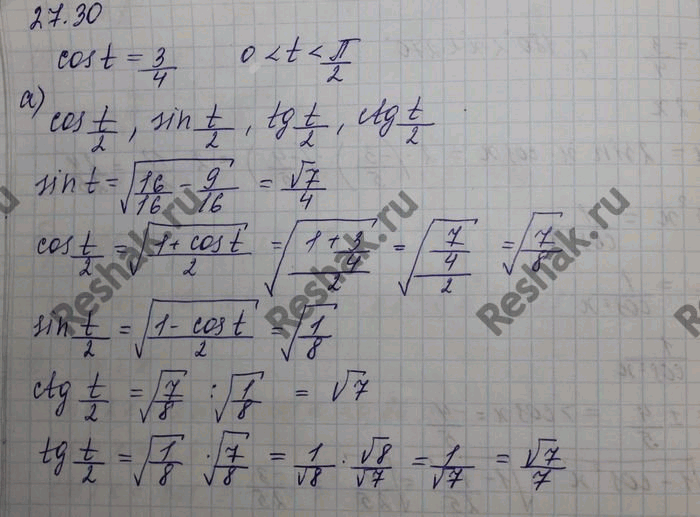 27.30
cos t = 3/4   0 < t < π/2
а) cos t/2 , sin t/2 , tg t/2 , ctg t/2
sin t = √(16/16 - 9/16) = √7/4
cos t/2 = √((1 + cos t)/2) = √((1 + 3/4)/2) = √((7/4)/2) = √(7/8)
sin t/2 = √((1 - cos t)/2) = √(1/8)
ctg t/2 = √(7/8) : √(1/8) = √7
tg t/2 = √(1/8) · √(7/8) = 1/√8 · √8/√7 = 1/√7 = √7/7
Reshak.ru
Reshak.ru
Reshak.ru